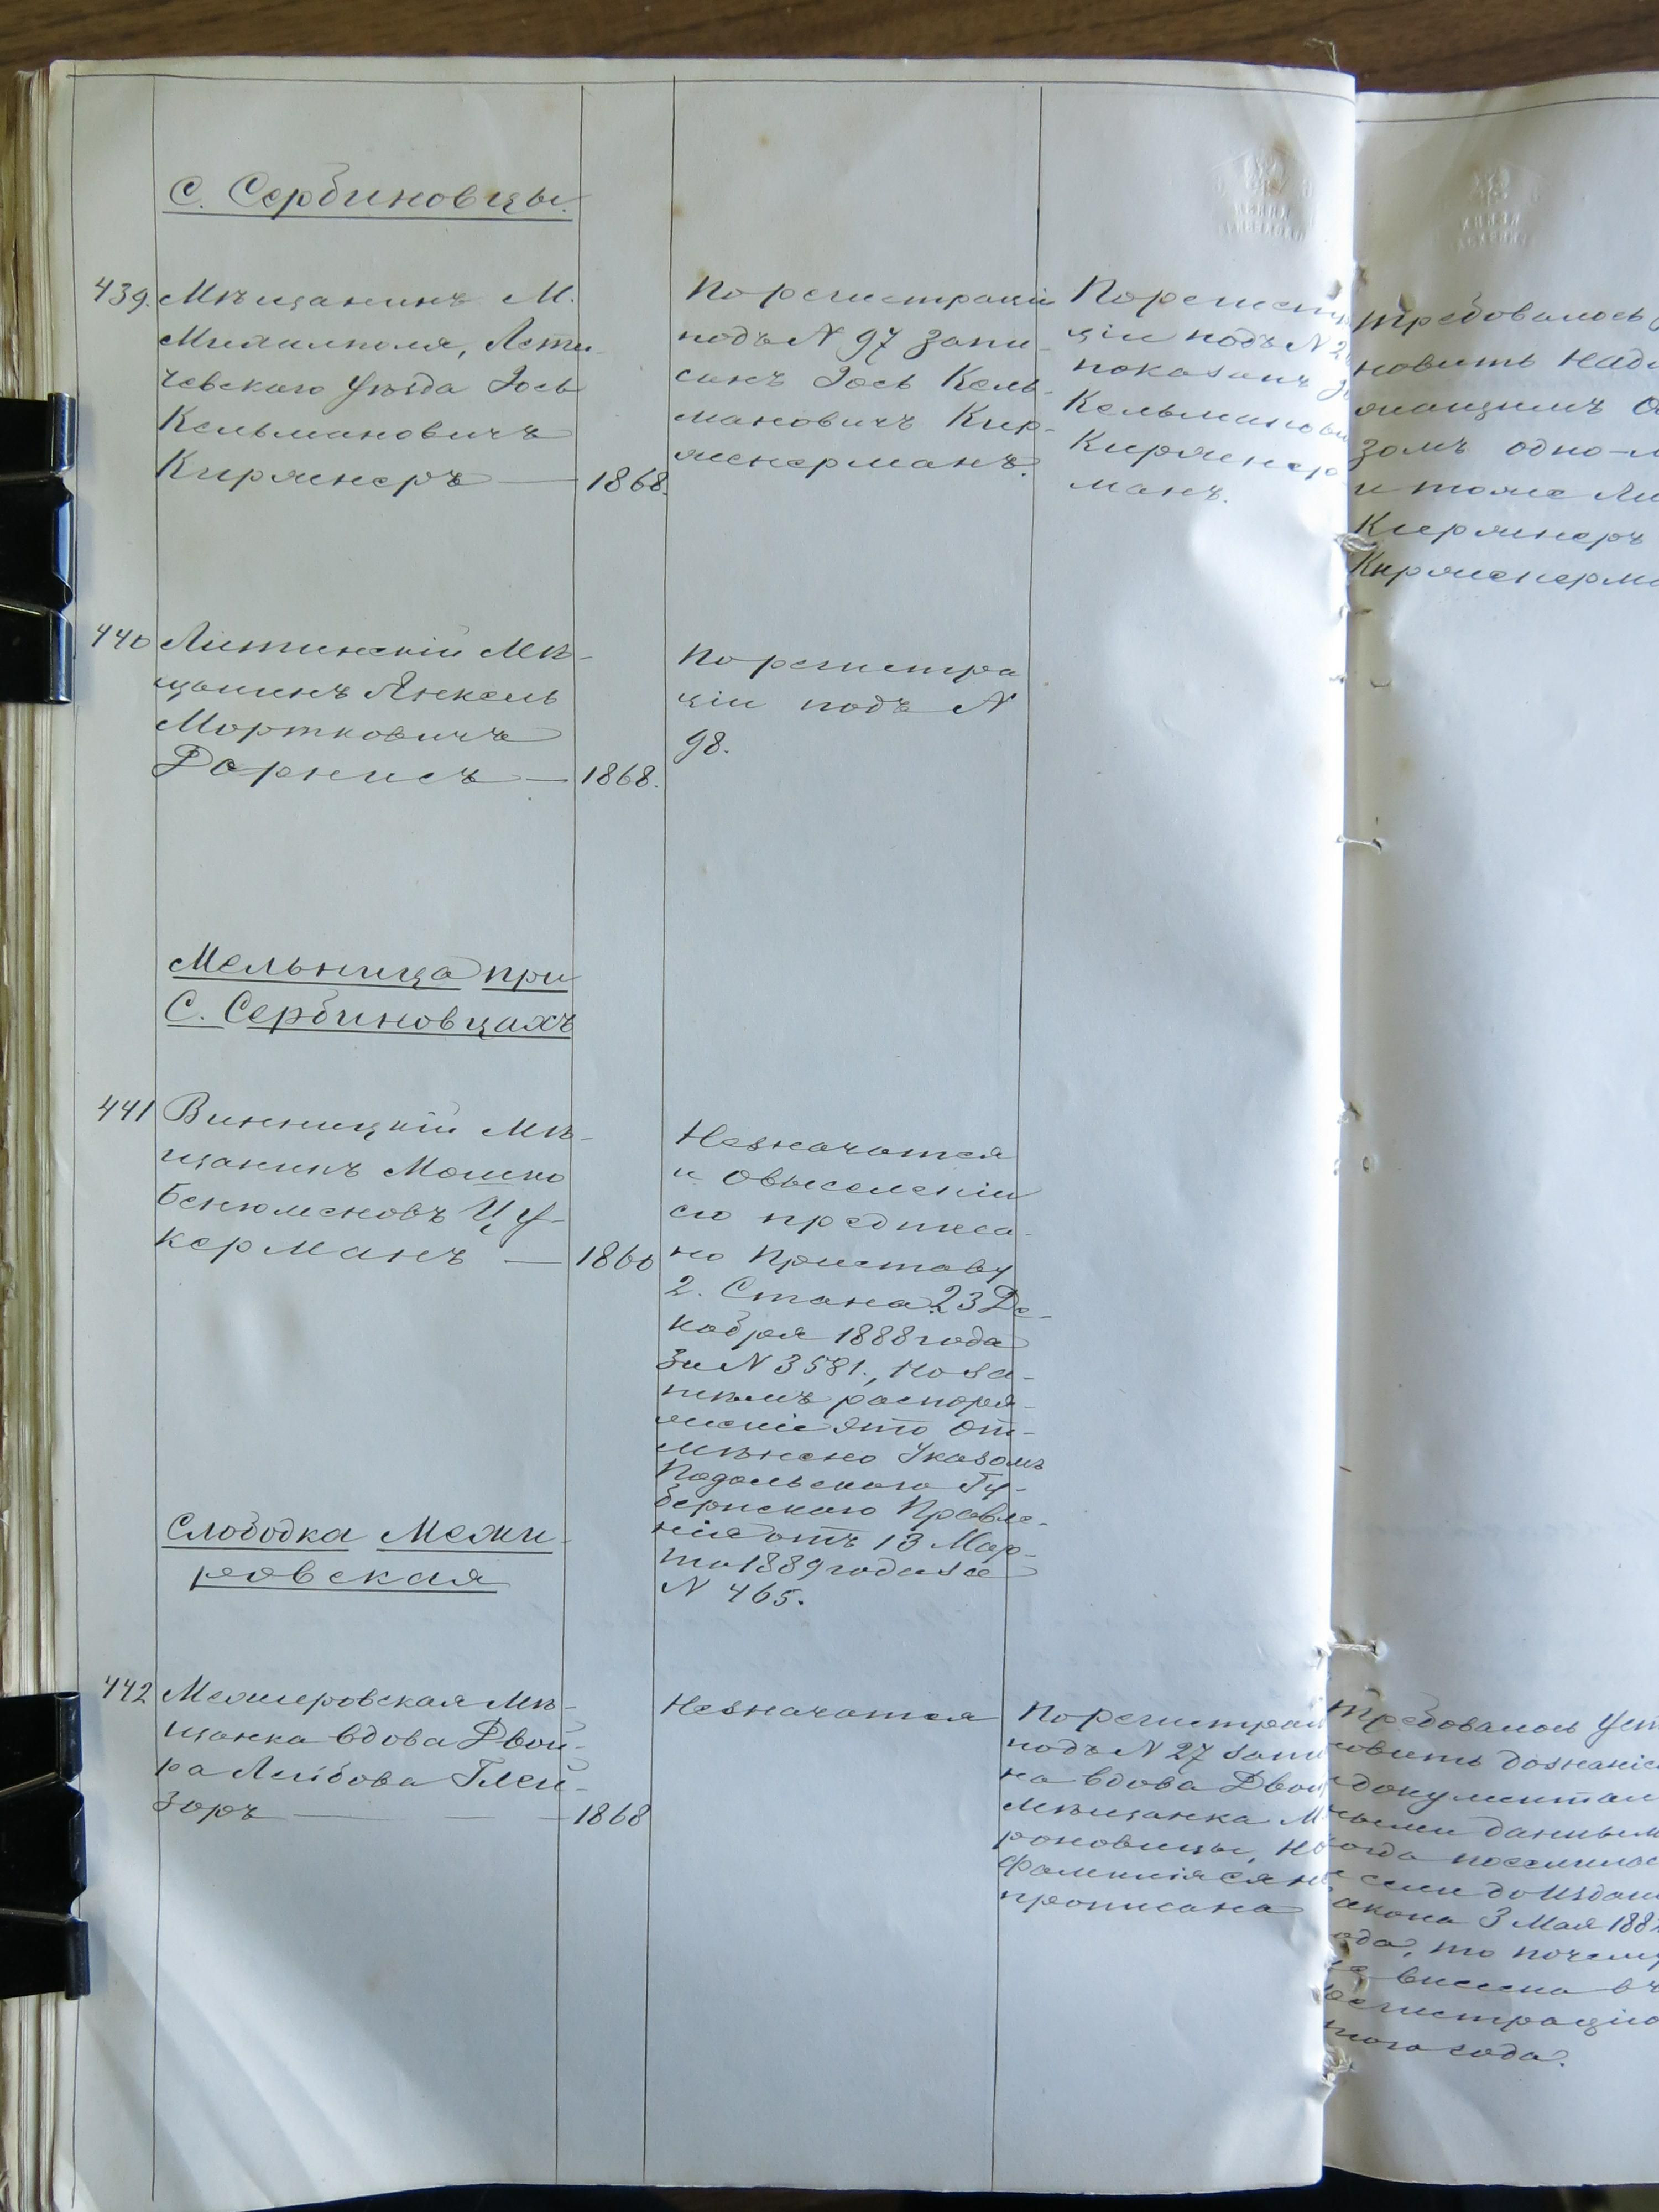 С. Сербиновцы.
439. Мѣщанинъ М.
Михалполя, Лети-
чевскаго уѣзда Іось
Кельмановичъ
Киржнеръ — 1868.
По регистраціи
подъ N 97 запи-
санъ Іось Кель-
мановичъ Кир-
женерманъ.
По регистра
ціи подъ N 2
показанъ
Кельманови
Киржнер
манъ.
требовалось
новить над
жащимъ О
зомъ одно-л
и тоже ли
Киржнеръ
Кирженерма
440 Литинскій Мѣ-
щанинъ Янкель
Мортковичъ
Дорнисъ — 1868.
По регистра
ціи подъ N
98.
Мельница при
С. Сербиновцахъ
441 Винницкій Мѣ-
щанинъ Мошко
Бенюменовъ Цу-
керманъ — 1860
Незначатся
и овыселеніи
его предписа-
но Приставу
2. Стана 23 Де-
кабря 1888 года
за N 3581., Но за-
тѣмъ распоря-
женіе это от-
мѣнено Указомъ
Подольскаго Гу-
бернскаго Правле-
нія отъ 13 Мар-
та 1889 года за
N 465.
Слободка Межи-
ровская
442 Межировская Мѣ-
щанка вдова Двой-
ра Лейбова Глей-
зоръ — 1868
Незначатся
По регистрац
подъ N 27 запи
на вдова Двой
мѣщанка М
роновицы, но
фамилія ея не
прописана
требовалось уст
новить дознаніе
документал
ными данным
когда поселилас
селе до издан
акона 3 Мая 188
ода, то почему
не внесена въ
регистрацію
того года.